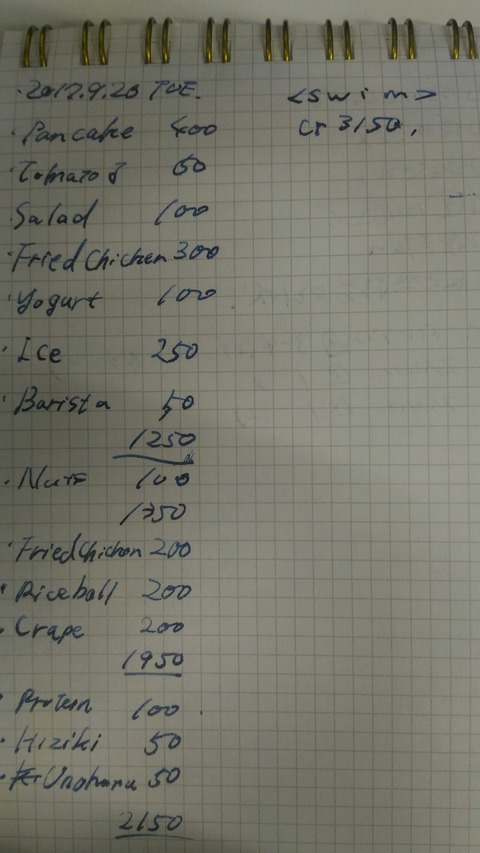 ·2017.9.26 TUE.
<swim>
cr 3150.
·Pancake 400
·Tomato 50
·Salad 100
·Fried Chicken 300
·Yogurt 100
·Ice 250
·Barista 50
1250
·Nuts 100
1350
·Fried Chicken 200
·Rice ball 200
·Crape 200
1950
·Protein 100
·Hiziki 50
·Unohana 50
2150